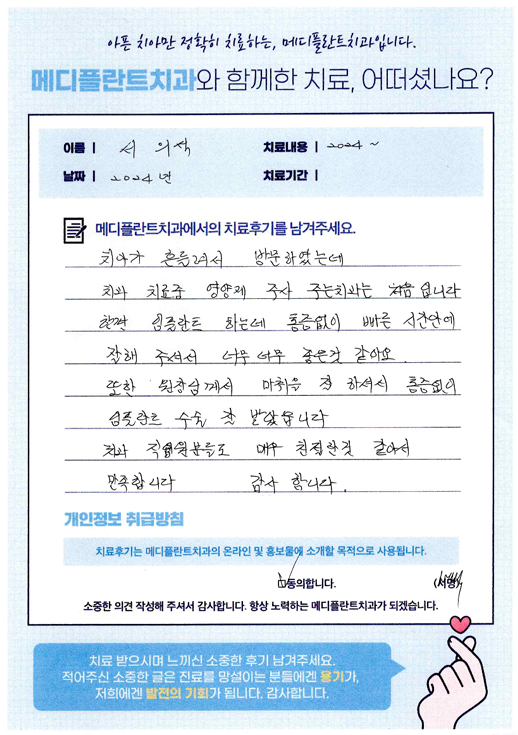 아픈 치아만 정확히 치료하는, 메디플란트치과입니다.
메디플란트치과와 함께한 치료, 어떠셨나요?
이름 | 서 의석 치료내용 | 2024 ~
날짜 | 2024년 치료기간 |
메디플란트치과에서의 치료후기를 남겨주세요.
치아가 흔들려서 방문하였는데
치과 치료중 영양제 주사 주는치과는 처음 입니다
한편 임플란트 하는데 통증없이 빠른 시간안에
잘해 주셔서 너무너무 좋은것 같아요
또한 원장님께서 마취음 잘 하셔서 통증없이
임플란트 수술 잘 받았습니다
치과 직원분들도 매우 친절한것 같아서
만족합니다 감사 합니다.
개인정보 취급방침
치료후기는 메디플란트치과의 온라인 및 홍보물에 소개할 목적으로 사용됩니다.
동의합니다. (서명)
소중한 의견 작성해 주셔서 감사합니다. 항상 노력하는 메디플란트치과가 되겠습니다.
치료 받으시며 느끼신 소중한 후기 남겨주세요.
적어주신 소중한 글은 진료를 망설이는 분들에겐 용기가,
저희에겐 발전의 기회가 됩니다. 감사합니다.